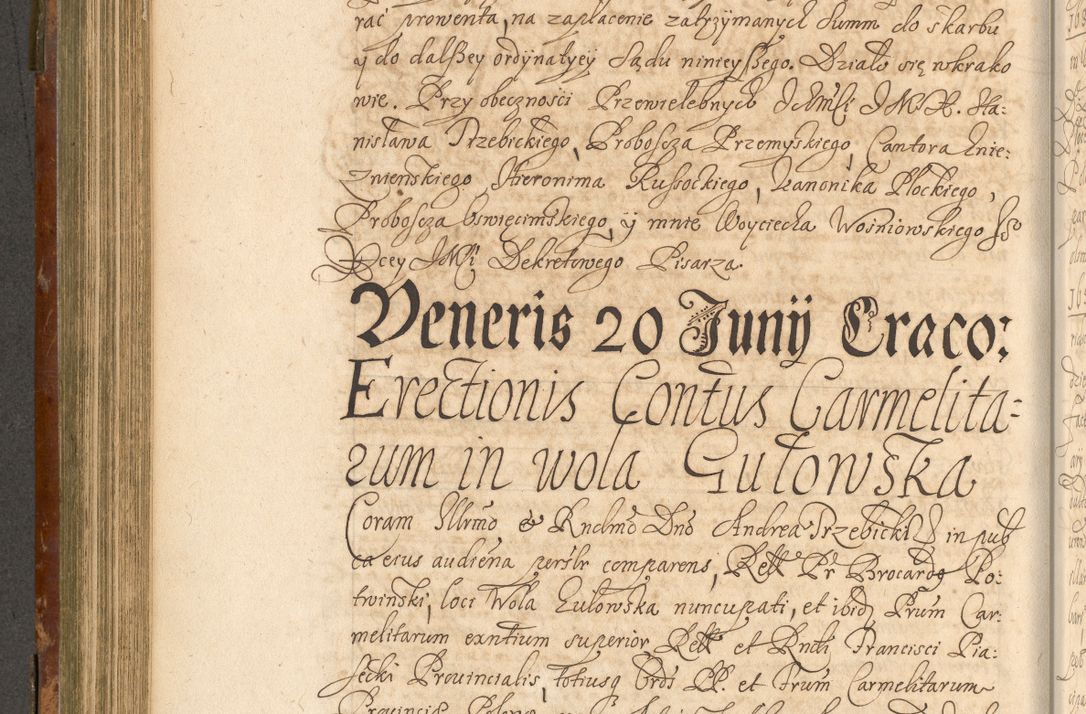 rać prowenta, na zapłacenie zatrzymanych summ do skarbu
y do dalszey ordynatyey sądu ninieyszego. Działo się w krako
wie. Przy obecznosci Przewielebnych Ichmśći J M X. Sta:
nisława Trzebickiego, Proboszcza Przemyskiego, Cantora Gnie:
znieńskiego, Hieronima Russockiego, Kanonika Płockiego,
Proboszcza Oswięcimskiego, ÿ mnie Woyciecha Wosniowskiego
Dekretowego Pisarza.
Veneris 20 Junÿ Craco:
Erectionis Contus Carmelita=
rum in wola Gułowska
Coram Illrmo & Rndmo Dno Andrea Trzebicki in pub
ca eius audiena perslr comparens, Rell Pr Brocardq Po:
twinski, loci Wola Gułowska nuncupati, et ibidz Prum Car:
melitarum exntium superior, Rell et Rndi Francisci Pia=
secki Provincialis, totiusq Ordis PP. et Frum Carmelitarum
Provinciæ Polonæ